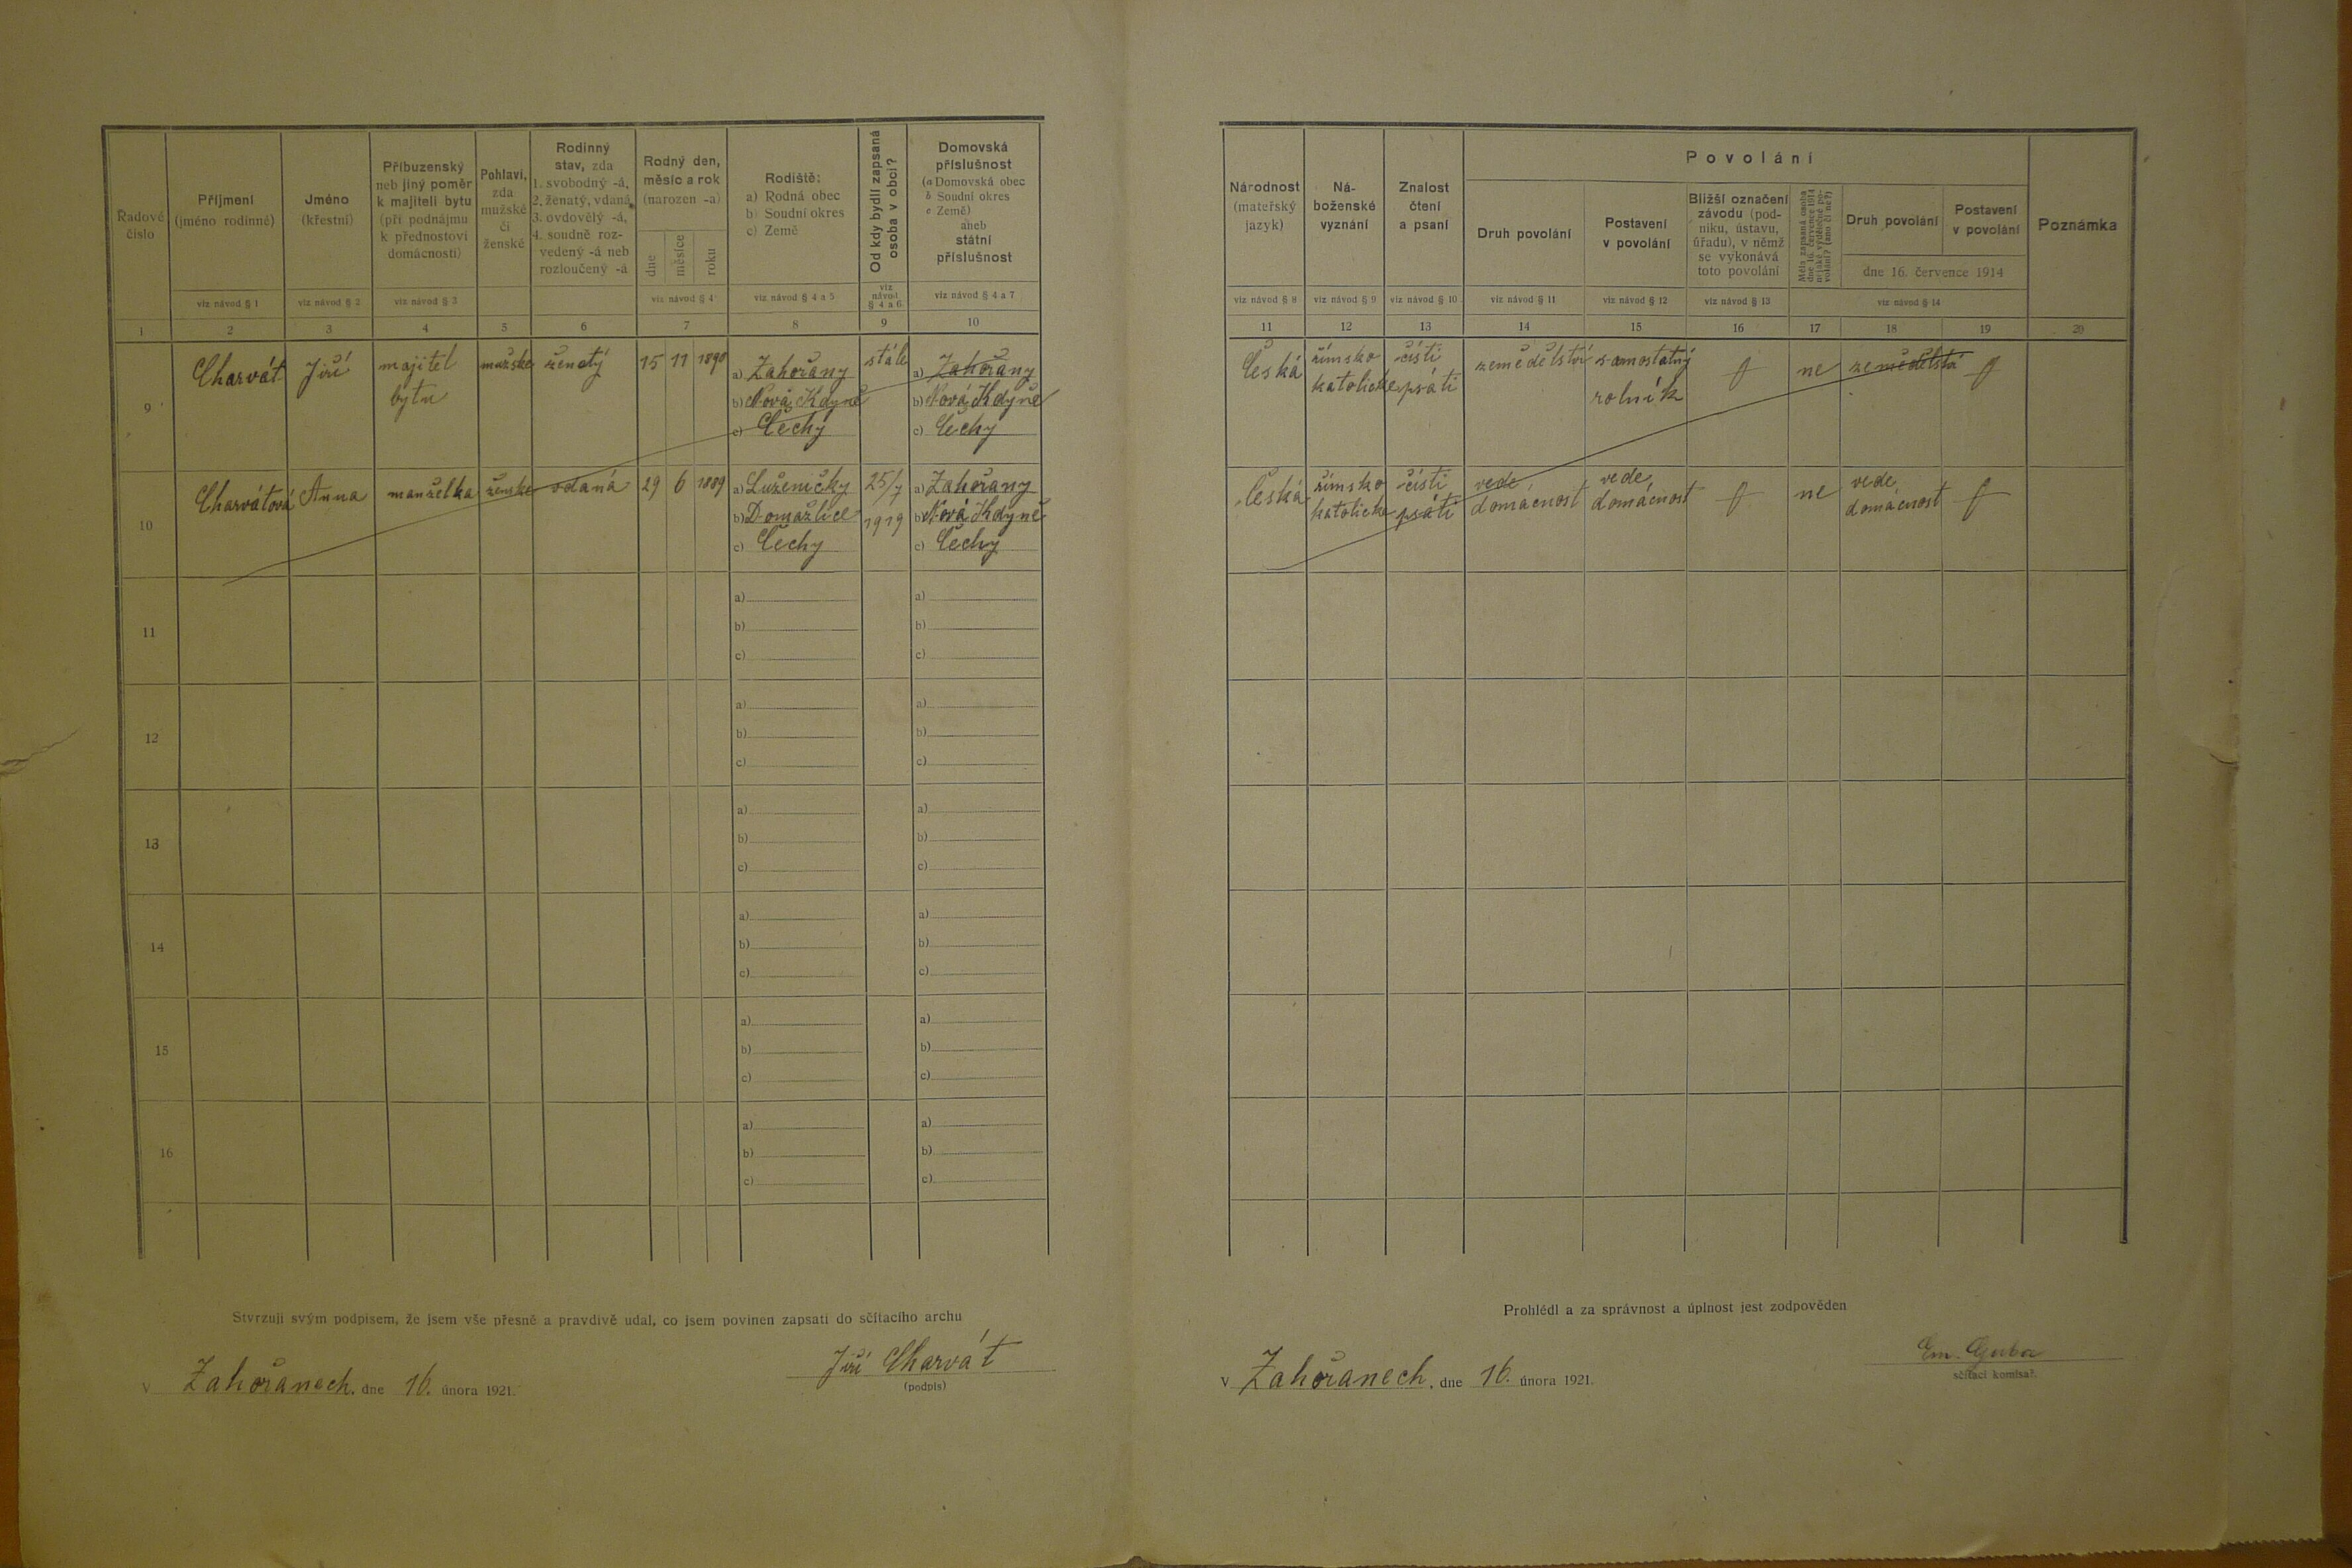 Řadové číslo
Příjmení
(jméno rodinné)
viz návod § 1
Jméno
(křestní)
viz návod § 2
Příbuzenský
neb jiný poměr
k majiteli bytu
(při podnájmu
k přednostovi
domácnosti)
viz návod § 3
Pohlaví,
zda
mužské
či
ženské
Rodinný
stav, zda
1. svobodný -á,
2. ženatý, vdaná,
3. ovdovělý -á,
4. soudně roz-
vedený -á neb
rozloučený -á
Rodný den,
měsíc a rok
(narozen -a)
dne
měsíce
roku
viz návod § 4
Rodiště:
a) Rodná obec
b) Soudní okres
c) Země
viz návod § 4 a 5
Od kdy bydlí zapsaná
osoba v obci?
viz
návod
§ 4 a 6
Domovská
příslušnost
(a Domovská obec
b Soudní okres
c Země)
aneb
státní
příslušnost
viz návod § 4 a 7
Národnost
(mateřský
jazyk)
viz návod § 8
Ná-
boženské
vyznání
viz návod § 9
Znalost
čtení
a psaní
viz návod § 10
Povolání
Druh povolání
viz návod § 11
Postavení
v povolání
viz návod § 12
Bližší označení
závodu (pod-
niku, ústavu,
úřadu), v němž
se vykonává
toto povolání
viz návod § 13
Měla zapsaná osoba
dne 16. července 1914
nějaké výdělečné po-
volání? (ano či ne?)
Druh povolání
Postavení
v povolání
dne 16. července 1914
viz návod § 14
Poznámka
1 2 3 4 5 6 7 8 9 10 11 12 13 14 15 16 17 18 19 20
9 Charvát Jiří majitel bytu mužské ženatý 15 11 1890 a) Zahořany stále a) Zahořany
b) Nová Kdyně b) Nová Kdyně
c) Čechy c) Čechy
Česká římsko čísti zemědělství samostatný ne zemědělství
katolické psáti rolník
10 Charvátová Anna manželka ženské vdaná 29 6 1889 a) Luženičky 25/7 a) Zahořany
b) Domažlice 1919 b) Nová Kdyně
c) Čechy c) Čechy
Česká římsko čísti vede vede ne vede
katolické psáti domácnost domácnost domácnost
11 a) a)
b) b)
c) c)
12 a) a)
b) b)
c) c)
13 a) a)
b) b)
c) c)
14 a) a)
b) b)
c) c)
15 a) a)
b) b)
c) c)
16 a) a)
b) b)
c) c)
Stvrzuji svým podpisem, že jsem vše přesně a pravdivě udal, co jsem povinen zapsati do sčítacího archu
Jiří Charvát
(podpis)
V Zahořanech, dne 16. února 1921.
Prohlédl a za správnost a úplnost jest zodpověden
Em.
sčítací komisař.
V Zahořanech, dne 16. února 1921.